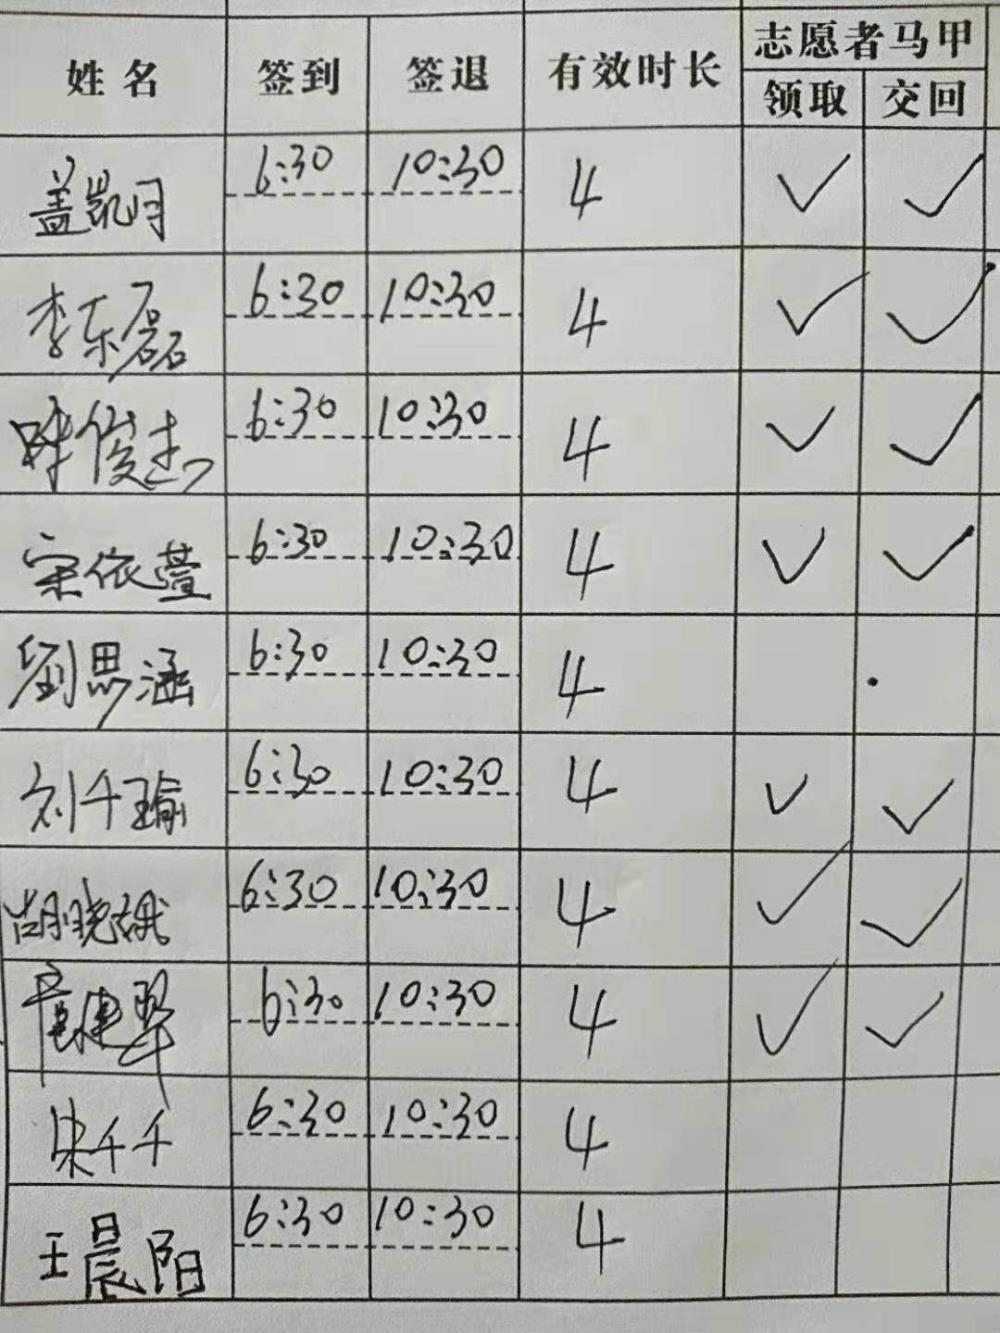 姓名 签到 签退 有效时长 志愿者马甲
领取 交回
盖凯月 6:30 10:30 4 ✓ ✓
李东磊 6:30 10:30 4 ✓ ✓
陈俊杰 6:30 10:30 4 ✓ ✓
宋依萱 6:30 10:30 4 ✓ ✓
劉思涵 6:30 10:30 4
刘千瑜 6:30 10:30 4 ✓ ✓
胡晓娥 6:30 10:30 4 ✓ ✓
6:30 10:30 4 ✓ ✓
千千 6:30 10:30 4
王晨阳 6:30 10:30 4